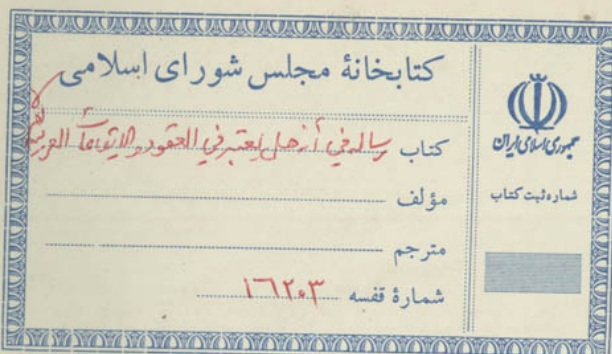 کتابخانهٔ مجلس شورای اسلامی
کتاب رساله في أنه هل يعتبر في العقود والايقاعات العربية
مؤلف
مترجم
شمارهٔ قفسه ١٦٢٠٣
جمهوری اسلامی ایران
شماره ثبت کتاب